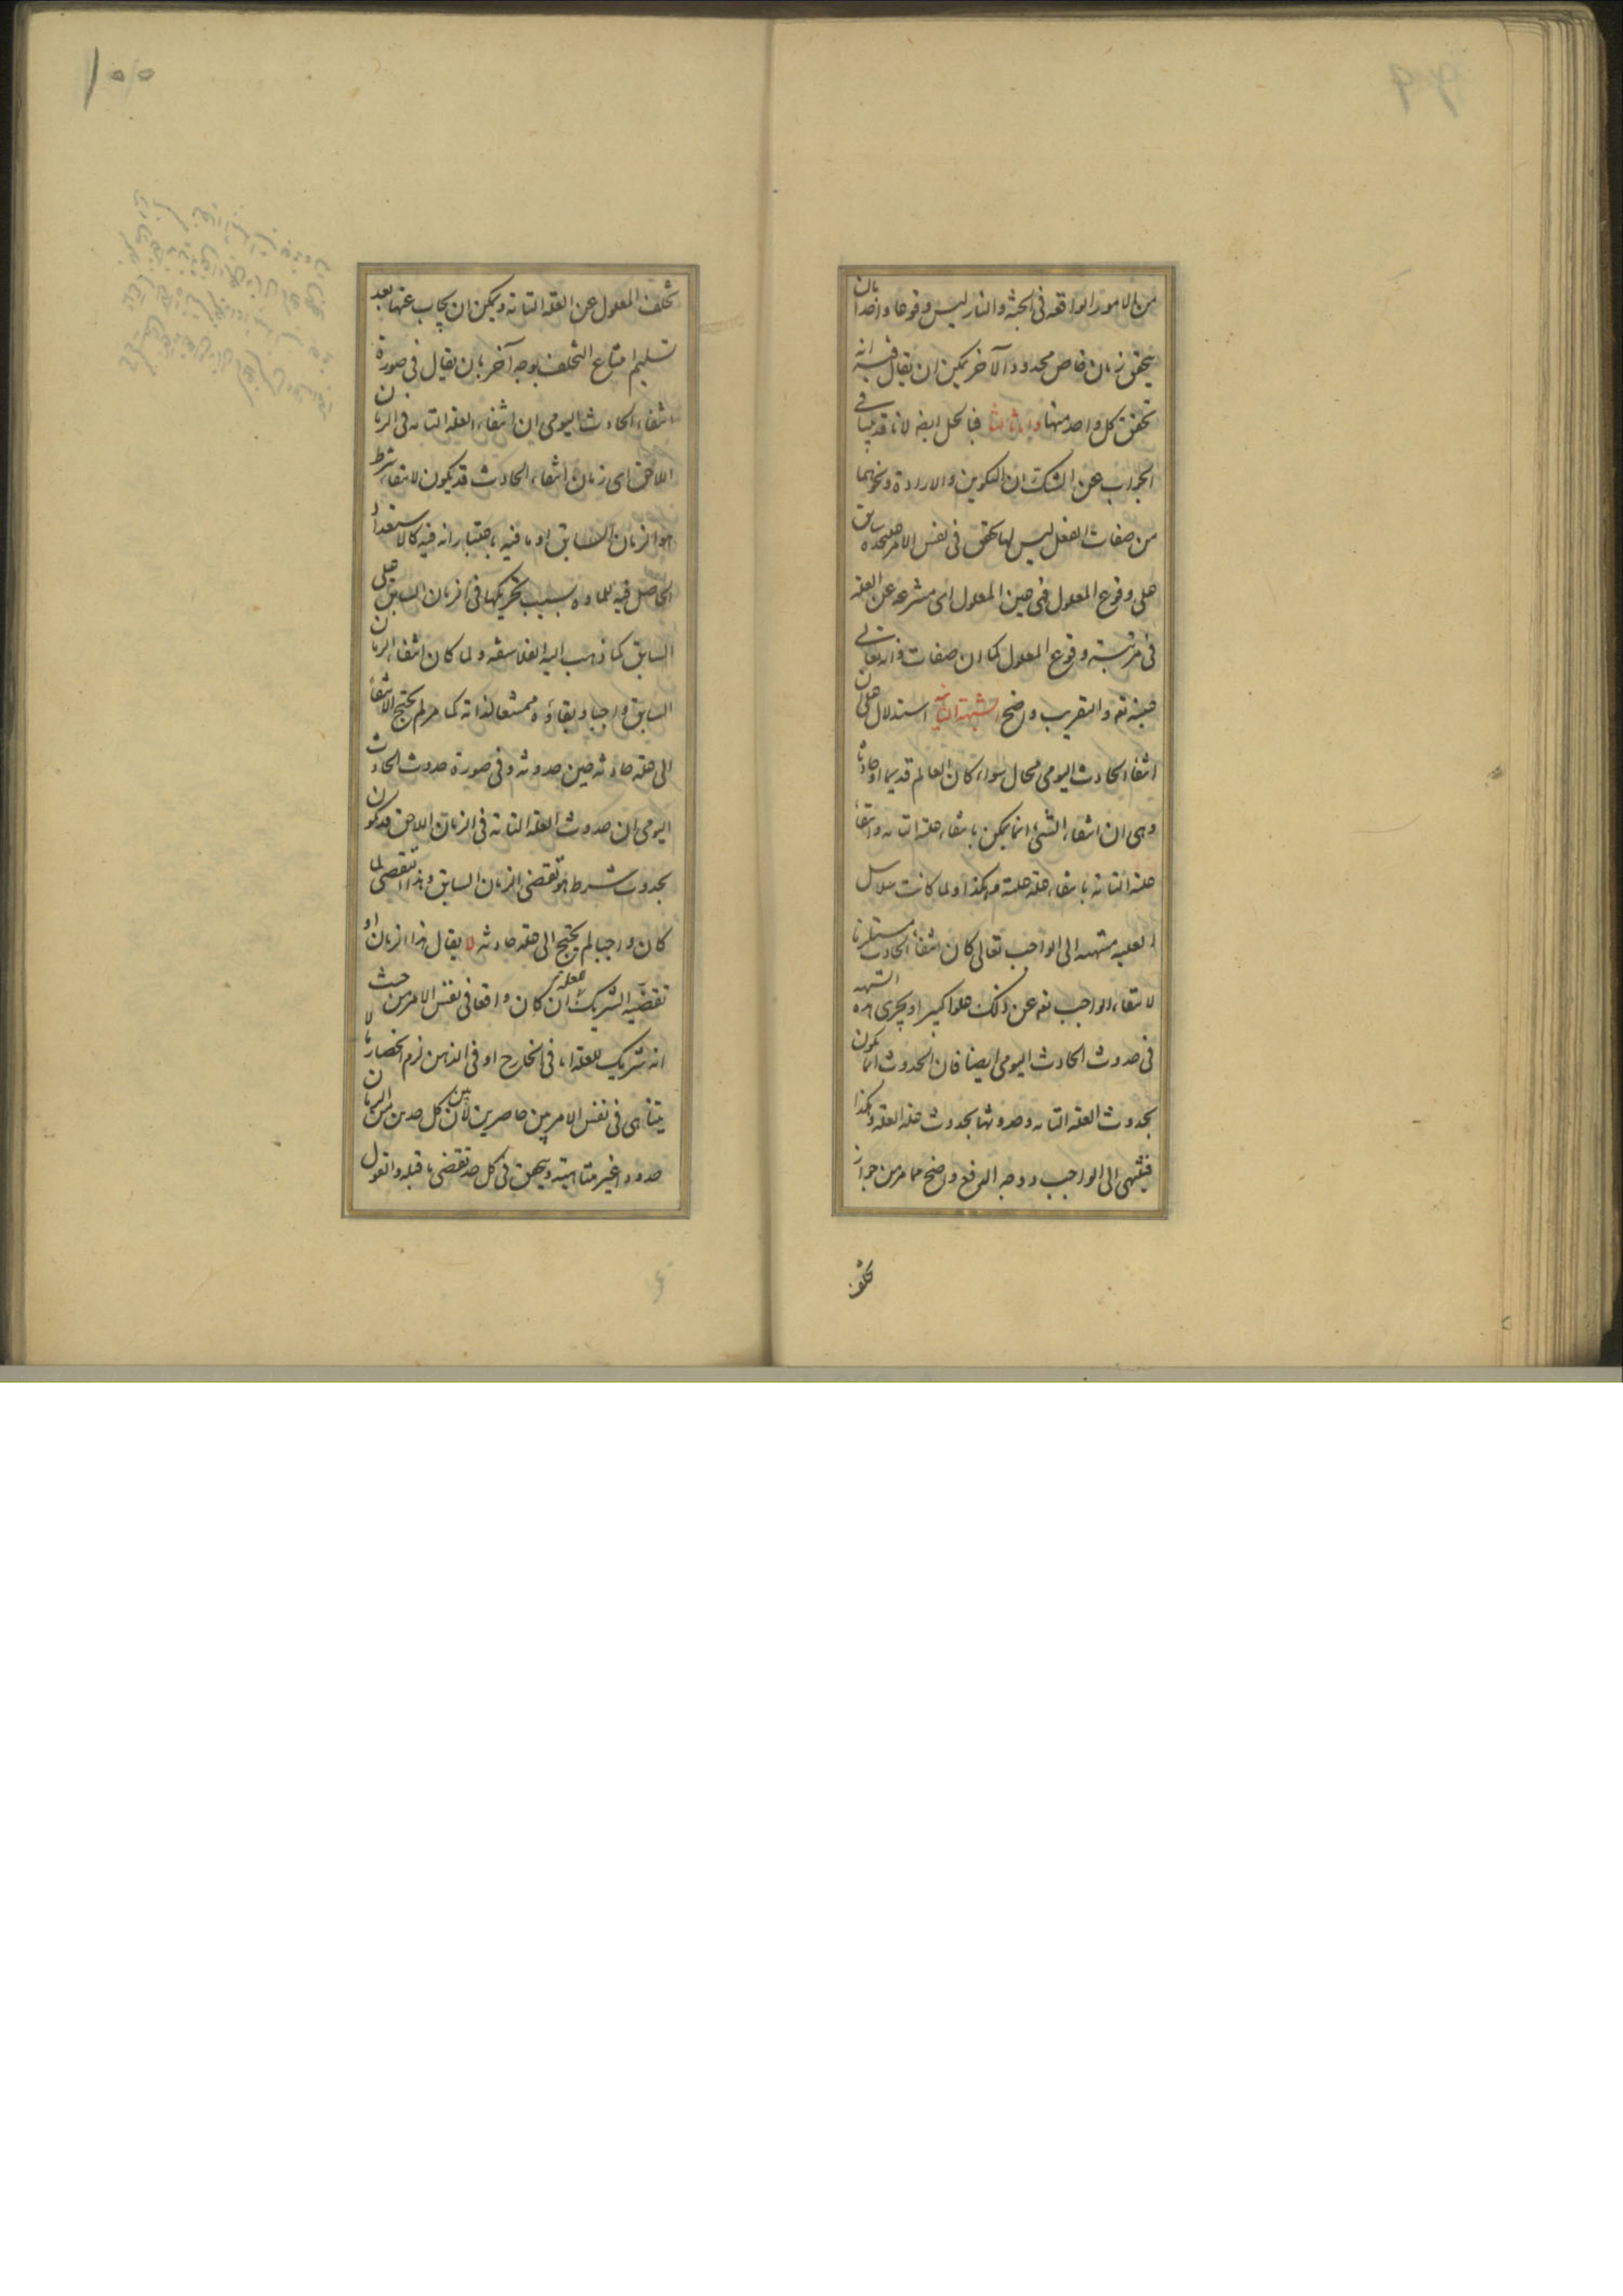 ٩٩
من الامور الواقعة فى الجنة والنار ليس وقوعا واحدا بان
يتحقق زمان خاص محدود الآخر يمكن ان يقال فيه انه
تحقق كل واحد منها واما ثالثا فبالحل ايضا لانا قد بينا فى
الجواب عن الشك ان التكوين والارادة ونحوهما
من صفات الفعل ليس لها تحقق فى نفس الامر عليحده سابق
على وقوع المعلول فهى عين المعلول اى منتزعة عن العلة
فى مرتبة وقوع المعلول كما ان صفات ذاته تعالى
عينه تعه والتقريب واضح الشبهة الثانية استدلال على ان
انتفاء الحادث اليومى محال سواء كان العالم قديما او حادثا
وهى ان انتفاء الشىء انما يمكن بانتفاء علته التامه وانتفاء
علته التامة بانتفاء علة علته وهكذا ولما كانت سلاسل
العلية منتهية الى الواجب تعالى كان انتفاء الحادث مستلزما
لانتفاء الواجب تعه عن ذلك علوا كبيرا ويجرى هذه الشبهه
فى حدوث الحادث اليومى ايضا فان الحدوث انما يكون
بحدوث العلة التامه وحدوثها بحدوث علة العلة وهكذا
فينتهى الى الواجب ووجه الدفع واضح مما مر من جواز
تخلف
١٠٠
تخلف المعلول عن العلة التامة ويمكن ان يجاب عنها بعد
تسليم امتناع التخلف بوجه آخر بان يقال فى صورة
انتفاء الحادث اليومى ان انتفاء العلة التامه فى الزمان
اللاحق اى زمان انتفاء الحادث قد يكون لانتفاء شرط
هو الزمان السابق او ما فيه باعتبار انه فيه كالاستعداد
الحاصل فيه للمادة بسبب تحريكها فى الزمان السابق على
السابق كما ذهب اليه الفلاسفة ولما كان انتفاء الزمان
السابق واجبا وبقاؤه ممتنعا لذاته كما مر لم يحتج الانتفاء
الى علة حادثة حين حدوثه وفى صورة حدوث الحادث
اليومى ان حدوث العلة التامة فى الزمان اللاحق قد يكون
بحدوث شرط هو تقضى الزمان السابق وهذا التقضى لما
كان واجبا لم يحتج الى علة حادثة لا يقال هذا الزمان او
تقضيه الشريك للعلة ان كان واقعا فى نفس الامر من حيث
انه شريك للعلة اما فى الخارج او فى الذهن لزم انحصار ما لا
يتناهى فى نفس الامر بين حاصرين لان بين كل حدين من الزمان
حدودا غير متناهية ويتحقق فى كل حد تقضى ما قبله والقول